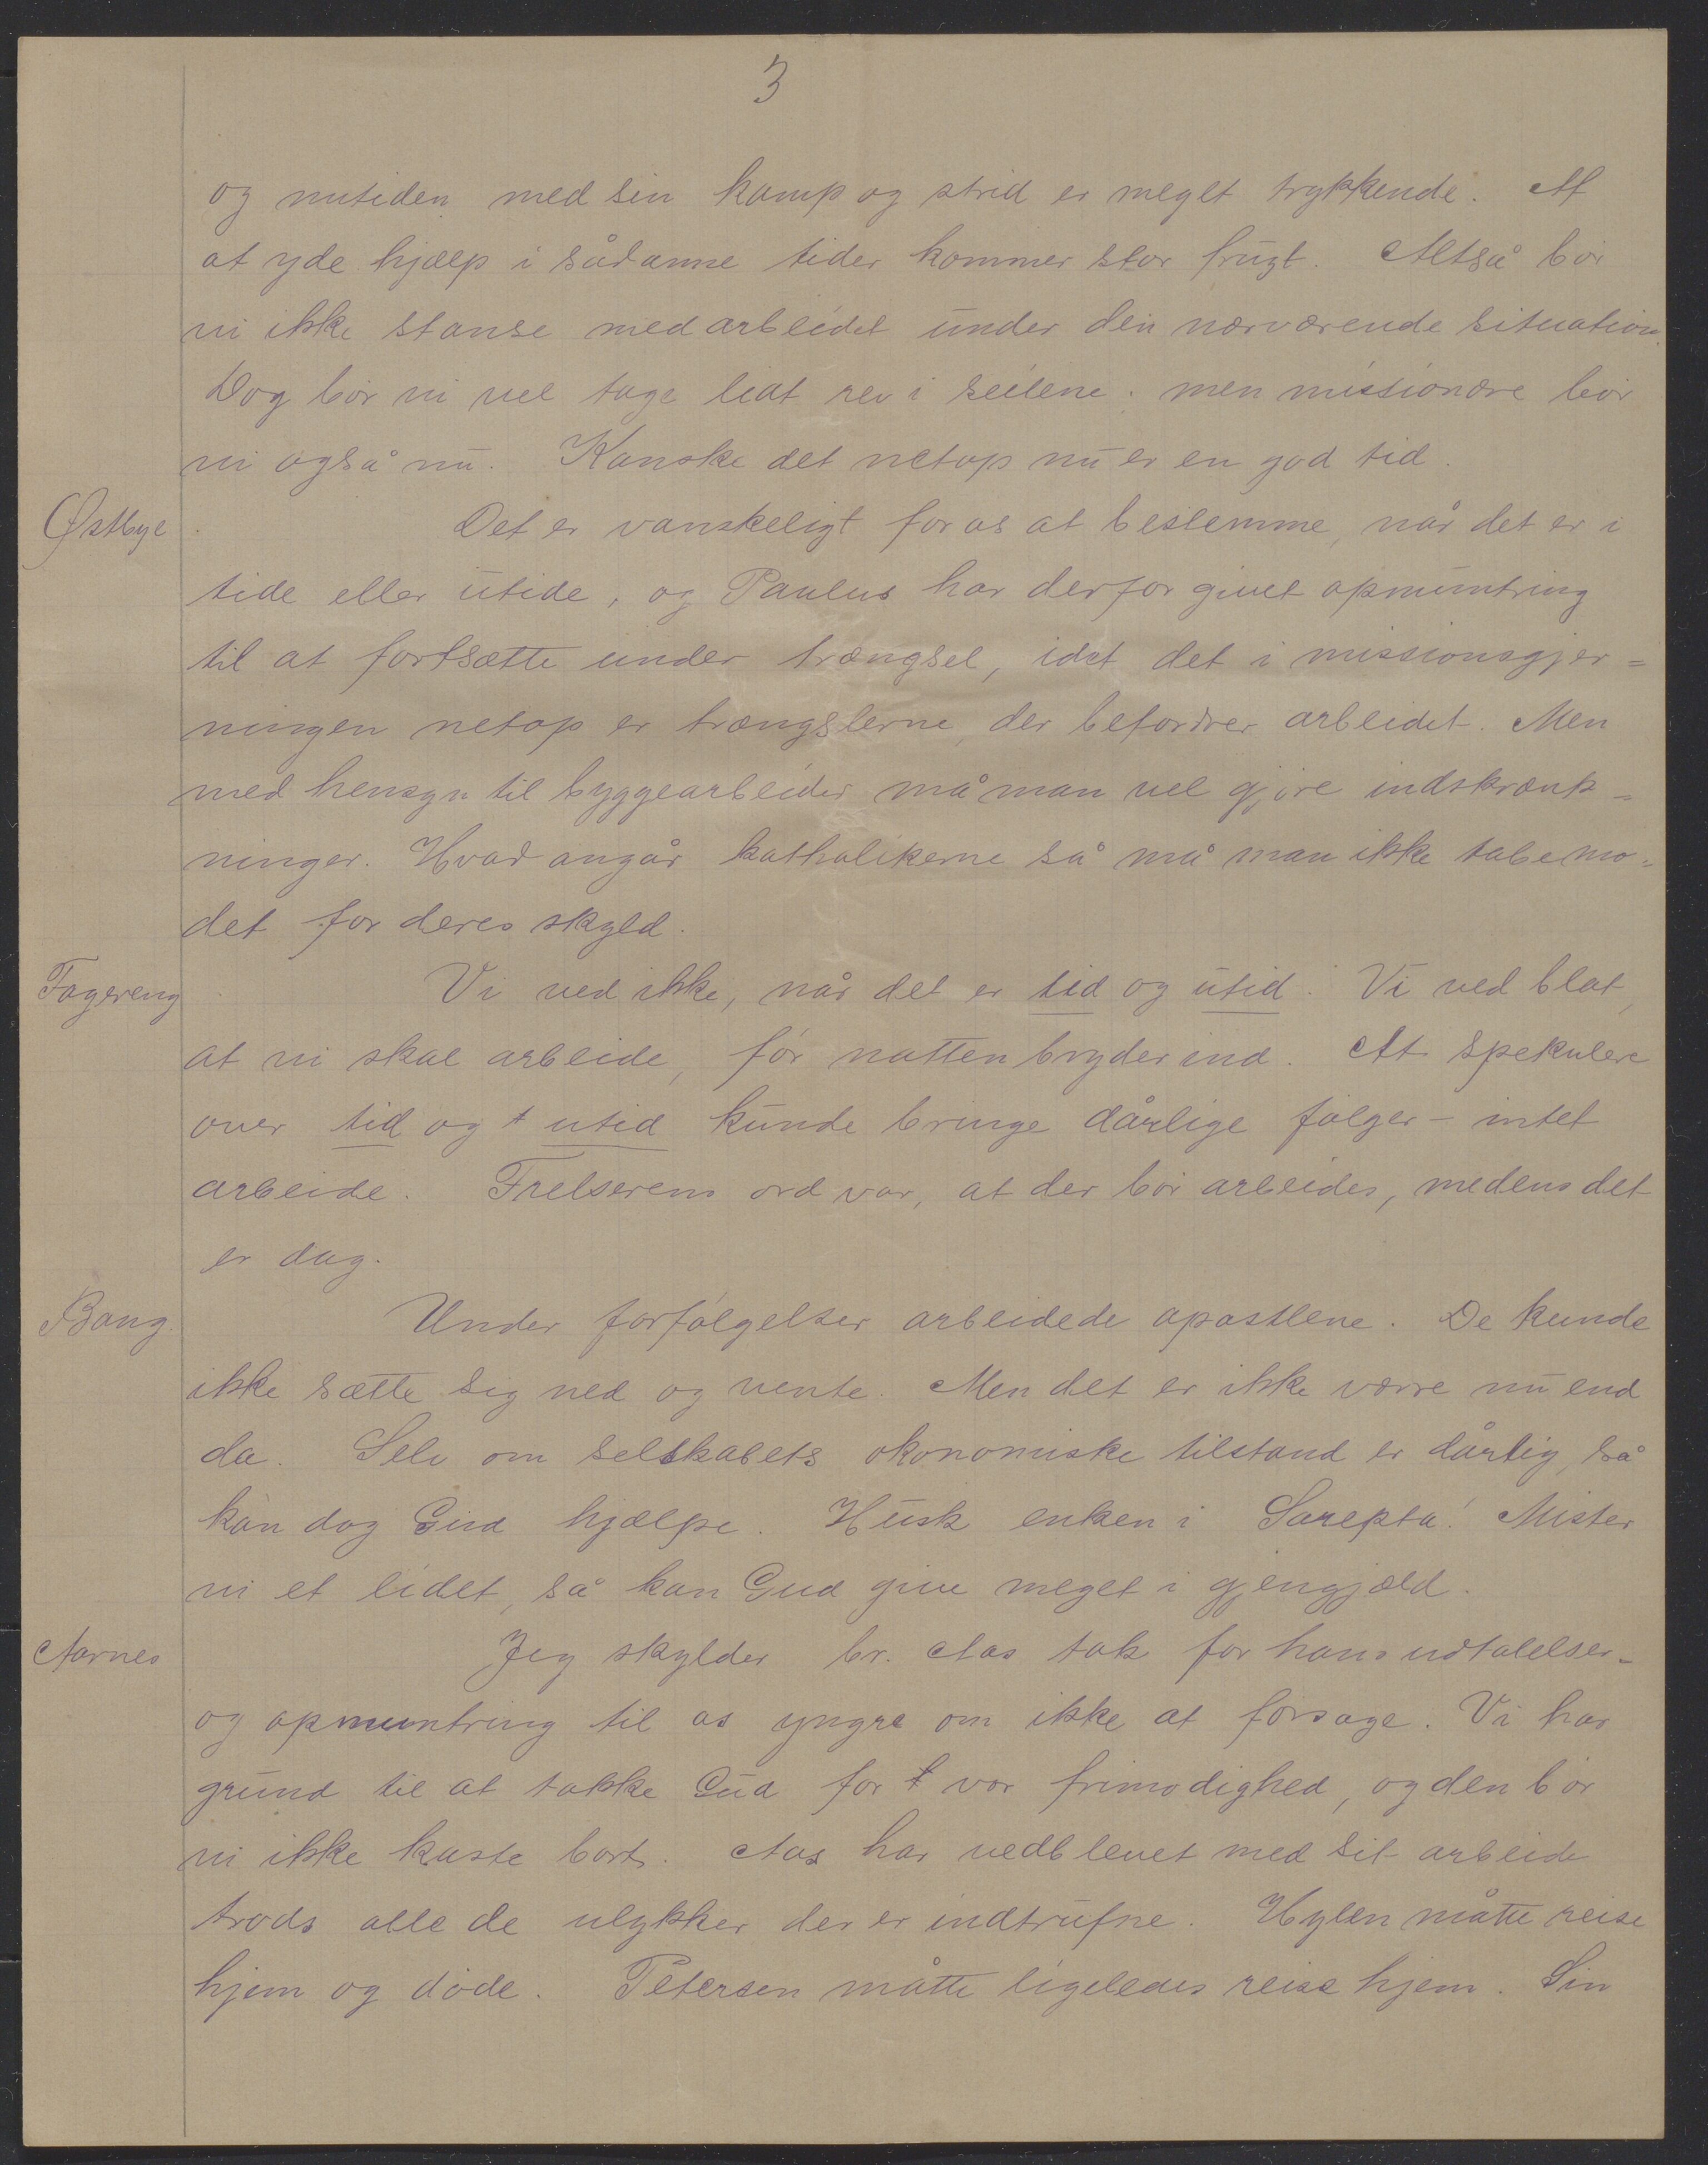 3
og nutiden med sin kamp og strid er meget trykkende. Af
at yde hjælp i sådanne tider kommer stor frugt. Altså bør
vi ikke stanse med arbeidet under den nærværende situation.
Dog bør vi vel tage lidt rev i seilene; men missionære bør
vi også nu. Kanske det netop nu er en god tid.
Østbye
Det er vanskeligt for os at bestemme, når det er i
tide eller utide, og Paulus har derfor givet opmuntring
til at fortsætte under trængsel, idet det i missionsgjer=
ningen netop er trængslerne, der befordrer arbeidet. Men
med hensyn til byggearbeider må man vel gjøre indskrænk=
ninger. Hvad angår katholikerne så må man ikke tabe mo=
det for deres skyld.
Fagereng
Vi ved ikke, når det er tid og utid. Vi ved blot,
at vi skal arbeide, før natten bryder ind. At spekulere
over tid og t utid kunde bringe dårlige følger – intet
arbeide. Frelserens ord var, at der bør arbeides, medens det
er dag.
Bang.
Under forfølgelser arbeidede apostlene. De kunde
ikke sætte sig ned og vente. Men det er ikke værre nu end
da. Selv om selskabets økonomiske tilstand er dårlig, så
kan dog Gud hjælpe. Husk enken i Sarepta! Mister
vi et lidet, så kan Gud give meget i gjengjæld.
Aarnes
Jeg skylder br. Aas tak for hans udtalelser
og opmuntring til os yngre om ikke at forsage. Vi har
grund til at takke Gud for t vor frimodighed, og den bør
vi ikke kaste bort. Aas har vedblevet med sit arbeide
trods alle de ulykker der er indtrufne. Hylen måtte reise
hjem og døde. Petersen måtte ligeledes reise hjem. Sin